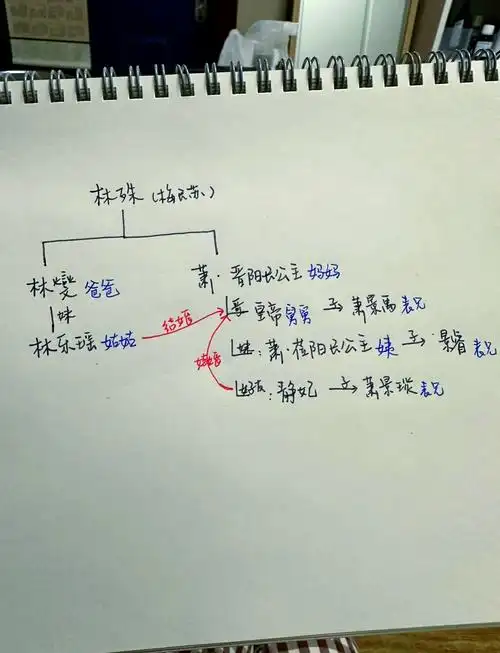 林殊(梅长苏)
林燮 爸爸
妹
林乐瑶 姑姑
萧·晋阳长公主 妈妈
结婚
皇帝 舅舅 子 萧景禹 表兄
妹:萧·莅阳长公主 姨 子 景睿 表兄
结婚
静妃 子 萧景琰 表兄